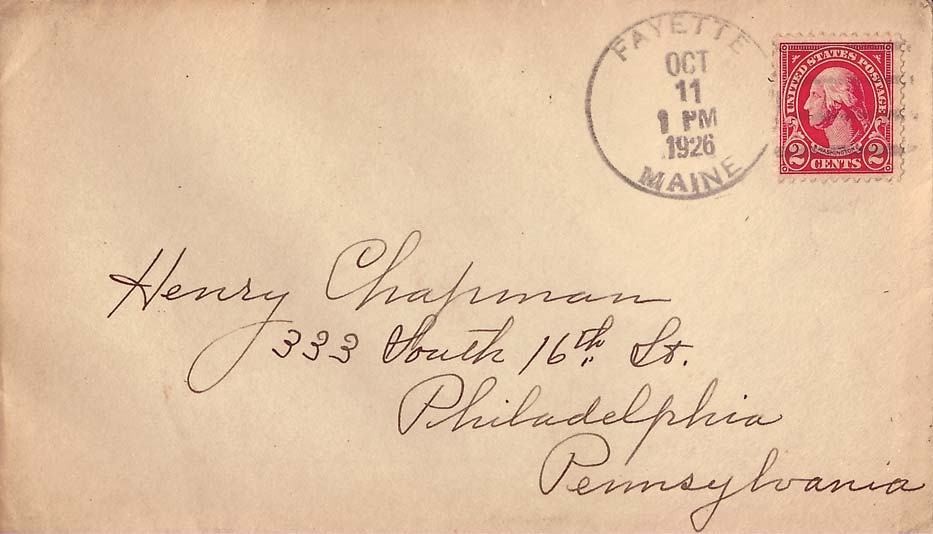 FAYETTE
OCT
11
1 PM
1926
MAINE
UNITED STATES POSTAGE
WASHINGTON
2 CENTS 2
Henry Chapman
333 South 16th St.
Philadelphia
Pennsylvania